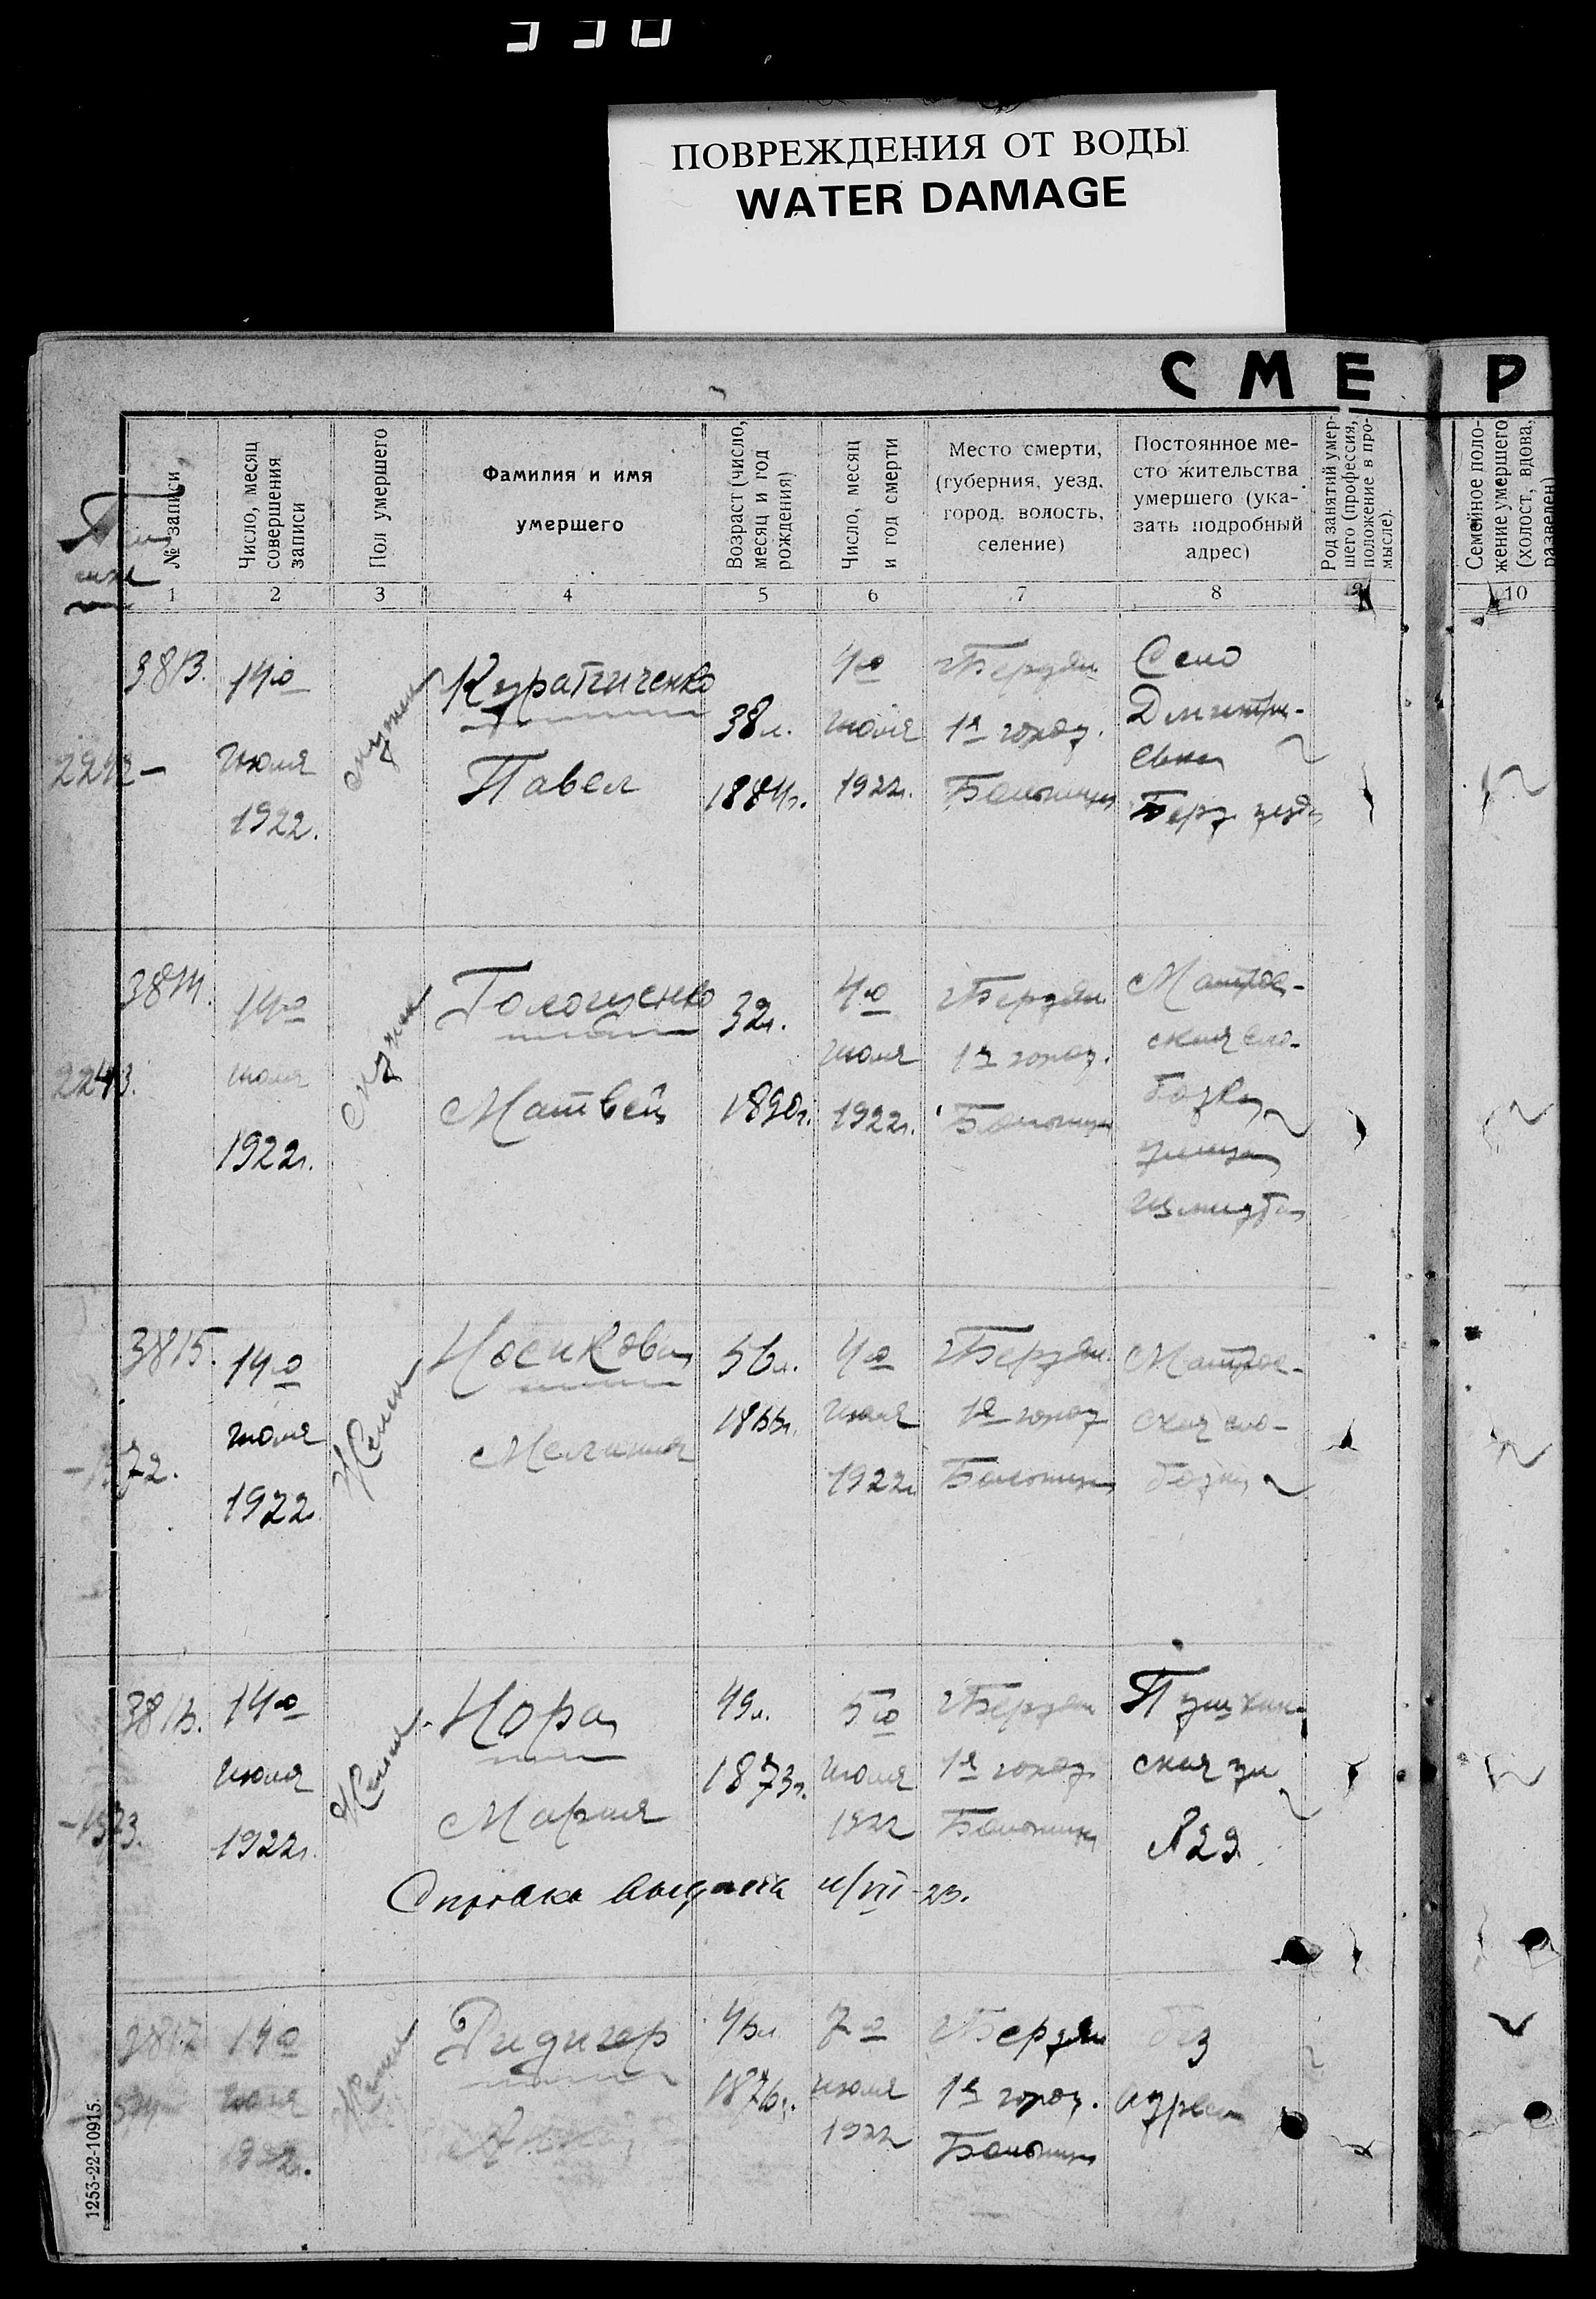 ПОВРЕЖДЕНИЯ ОТ ВОДЫ
WATER DAMAGE
СМЕ Р
№ записи
Число, месяц совершения записи
Пол умершего
Фамилия и имя
умершего
Возраст (число, месяц и год рождения)
Число, месяц и год смерти
Место смерти,
(губерния, уезд,
город, волость,
селение)
Постоянное ме-
сто жительства
умершего (ука-
зать подробный
адрес)
Род занятий умер-
шего (профессия,
положение в про-
мысле).
Семейное поло-
жение умершего
(холост, вдова,
разведен)
1 2 3 4 5 6 7 8 10
3813. 14го
июля
1922.
Павел
38л.
1884г.
4го
июля
1922г.
Бердян.
1я город.
Больница
Село
Дмитри-
евка
Берд. уезда
2242 –
3814. 14го
июля
1922г.
Матвей
32г.
1890г.
4го
июля
1922г.
Бердян.
1я город.
Больница
Матрос-
ская сло-
бодка
улица
2243.
3815. 14го
июля
1922
Женск
Носикова
56л.
1866г.
4го
июля
1922г
Бердян.
1я город
Больница
Матрос-
ская сло-
бодка
3816. 14го
июля
1922г.
Женск
Нора
Мария
49л.
1873г.
5го
июля
1922
Бердян
1я город.
Больница
Пушкин-
ская ул
№29.
-1573.
Справка выдана 11/VII-23.
3817 14го
июля
1922.
Женск
Ридигер
46л
1876г.
7го
июля
1922
Бердян
1я город.
Больница
без
адреса
1253-22-10915.